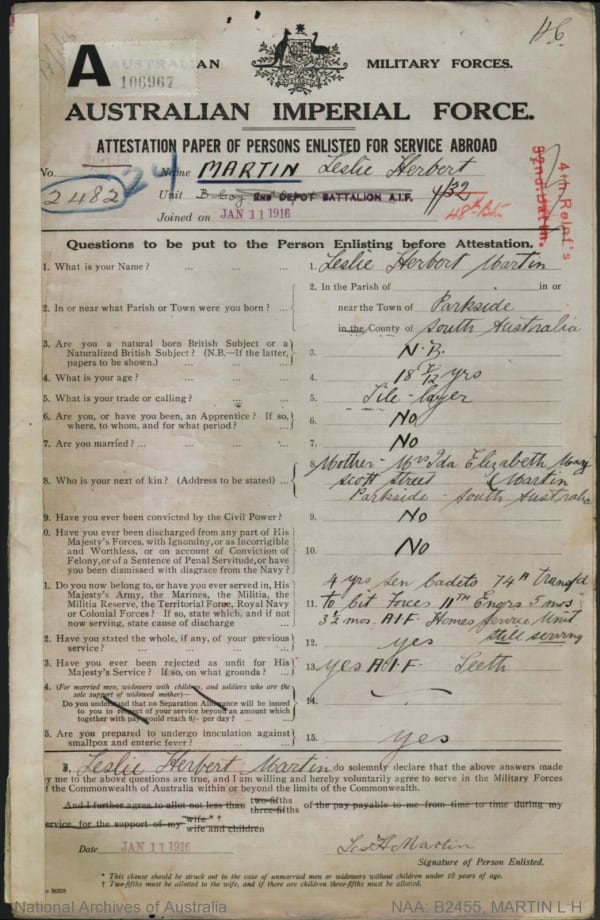 46
A AUSTRALIAN MILITARY FORCES.
106967
AUSTRALIAN IMPERIAL FORCE.
ATTESTATION PAPER OF PERSONS ENLISTED FOR SERVICE ABROAD
No. 2482 Name MARTIN Leslie Herbert
Unit B Coy 2ND DEPOT BATTALION A.I.F. 4/32
48th Btn
Joined on JAN 11 1916
4th Reinf's
32nd Battn.
Questions to be put to the Person Enlisting before Attestation.
1. What is your Name? ... ... ... 1. Leslie Herbert Martin
2. In or near what Parish or Town were you born? ... 2. In the Parish of in or
near the Town of Parkside
in the County of South Australia
3. Are you a natural born British Subject or a
Naturalized British Subject? (N.B.—If the latter,
papers to be shown.) ... ... ... 3. N.B.
4. What is your age? ... ... ... 4. 18 7/12 yrs
5. What is your trade or calling? ... ... 5. Tile-layer
6. Are you, or have you been, an Apprentice? If so,
where, to whom, and for what period? ... ... 6. No
7. Are you married? ... ... ... ... 7. No
8. Who is your next of kin? (Address to be stated) ... 8. Mother - Mrs Ida Elizabeth May
Scott Street Martin
Parkside - South Australia
9. Have you ever been convicted by the Civil Power? 9. No
0. Have you ever been discharged from any part of His
Majesty's Forces, with Ignominy, or as Incorrigible
and Worthless, or on account of Conviction of
Felony, or of a Sentence of Penal Servitude, or have
you been dismissed with disgrace from the Navy? 10. No
1. Do you now belong to, or have you ever served in, His
Majesty's Army, the Marines, the Militia, the
Militia Reserve, the Territorial Force, Royal Navy
or Colonial Forces? If so, state which, and if not
now serving, state cause of discharge 11. 4 yrs sen cadets 74th transfd
to Cit Forces 11TH Engrs 5 mos
3½ mos. A.I.F. Homes Service Unit
still serving
2. Have you stated the whole, if any, of your previous
service? ... ... ... 12. yes
3. Have you ever been rejected as unfit for His
Majesty's Service? If so, on what grounds? ... 13. yes A.I.F. Teeth
4. (For married men, widowers with children, and soldiers who are the
sole support of widowed mother)—
Do you understand that no Separation Allowance will be issued
to you in respect of your service beyond an amount which
together with pay would reach 8/- per day? ... ... 14.
5. Are you prepared to undergo inoculation against
smallpox and enteric fever? ... ... 15. yes
I, Leslie Herbert Martin do solemnly declare that the above answers made
by me to the above questions are true, and I am willing and hereby voluntarily agree to serve in the Military Forces
of the Commonwealth of Australia within or beyond the limits of the Commonwealth.
And I further agree to allot not less than two-fifths three-fifths of the pay payable to me from time to time during my
service, for the support of my wife*† wife and children
Date JAN 11 1916 Les H Martin
Signature of Person Enlisted.
* This clause should be struck out in the case of unmarried men or widowers without children under 18 years of age.
† Two-fifths must be allotted to the wife, and if there are children three-fifths must be allotted.
National Archives of Australia NAA: B2455, MARTIN L H